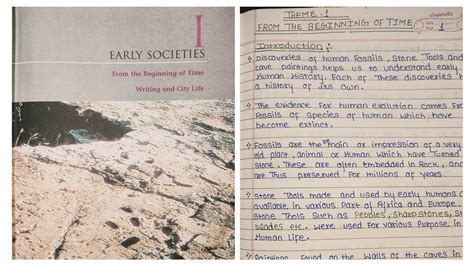 I
EARLY SOCIETIES
From the Beginning of Time
Writing and City Life
THEME-1
FROM THE BEGINNING OF TIME
1
Introduction:-
Discoveries of human Fossils, Stone Tools and
cave paintings helps us to understand early
Human History. Each of These discoveries
a history of its own.
The evidence for human evolution comes
Fossils of species of human which have
become extinct.
Fossils are the main or impression of a very
old plant, animal or Human which have Turned
Stone. These are often Embedded in Rock, and
are Thus preserved For millions of years
Stone Tools made and used by early humans
available in various Part of Africa and Europe.
Stone Tools Such as Pebbles, sharp stones,
blades etc. were used For various Purpose in
Human Life.
Found on the walls of the caves in